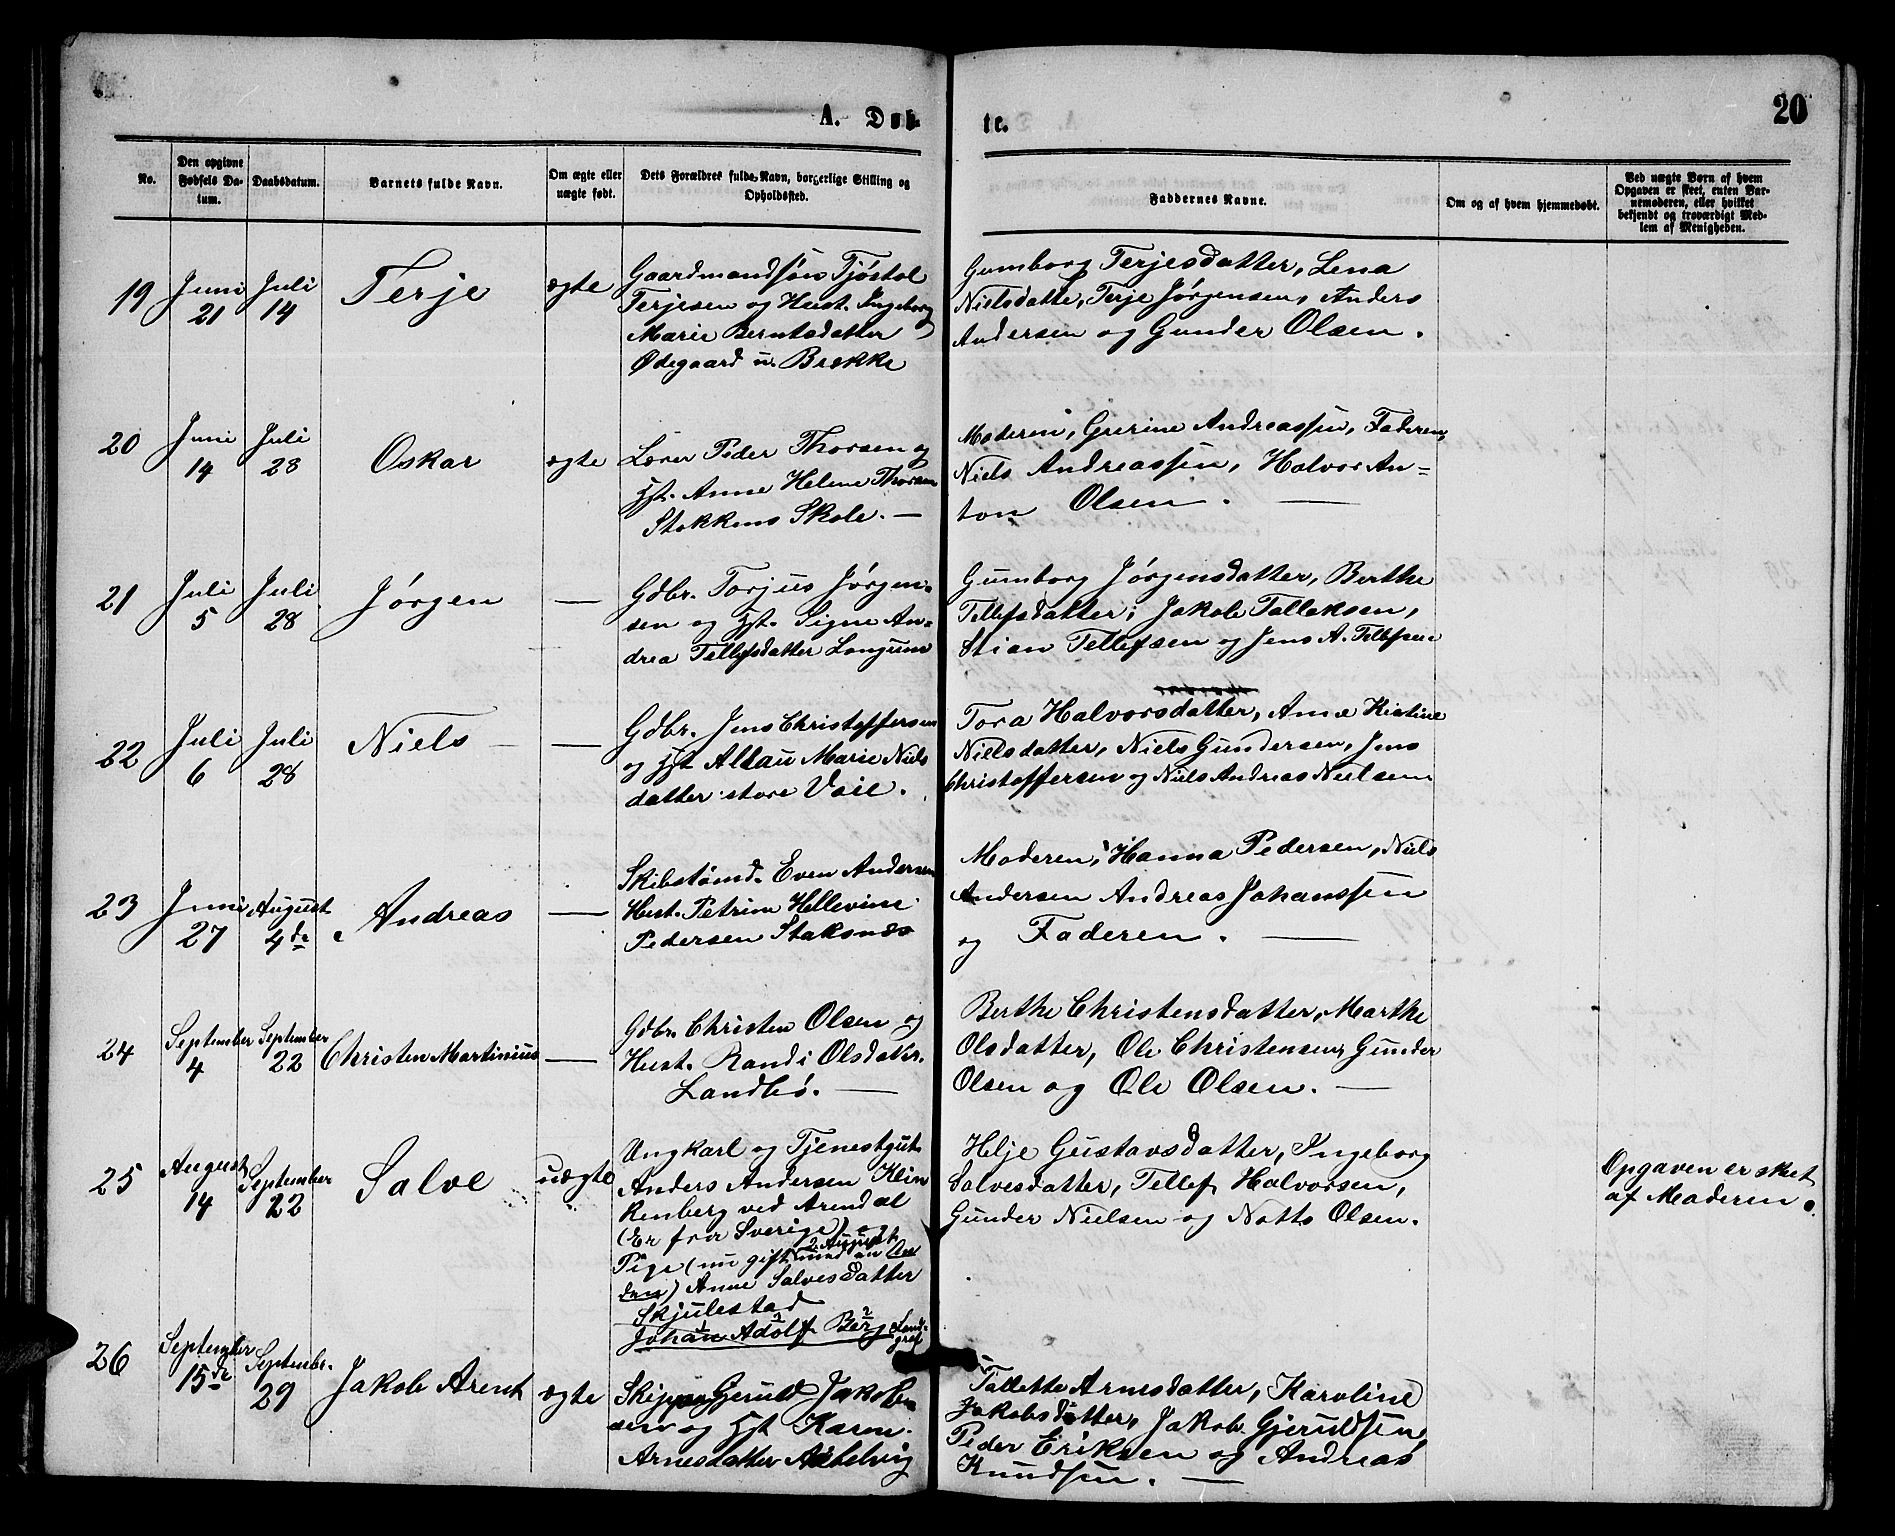 A. Døb-
te.
20
No.
Den opgivne Fødsels Da-
tum.
Daabsdatum.
Barnets fulde Navn.
Om ægte eller
uægte født.
Dets Forældres fulde Navn, borgerlige Stilling og
Opholdssted.
Faddernes Navne.
Om og af hvem hjemmedøbt.
Ved uægte Børn af hvem
Opgaven er skeet, enten Bar-
nemoderen, eller hvilket
bekjendt og troværdigt Med-
lem af Menigheden.
19
Juni
21
Juli
14
Terje
ægte
Gaardmandssøn Tjøstol
Terjesen og Hust. Ingeborg
Marie Berntsdatter
Ødegaard u. Brække
Gumborg Terjesdatter, Lena
Nielsdatter, Terje Jørgensen, Anders
Andersen og Gunder Olsen.
20
Juni
14
Juli
28
Oskar
ægte
Lærer Peder Thorsen og
Hst. Anne Helene Thorsen
Stokkens Skole. —
Moderen, Grerine Andreassen, Faderen,
Niels Andreassen, Halvor An-
ton Olsen. —
21
Juli
5
Juli
28
Jørgen
—
Gdbr. Torjus Jørgen-
sen og Hst. Signe An-
drea Tellefsdatter Longum
Gumborg Jørgensdatter, Berthe
Tellefsdatter, Jakob Tallaksen,
Stian Tellefsen og Jens A. Tellefsen
22
Juli
6
Juli
28
Niels
—
Gdbr. Jens Christoffersen
og Hst Marie Niels
datter store Vaie.
Tora Halvorsdatter, Anne Kistine
Nielsdatter, Niels Gundersen, Jens
Christoffersen og Niels Andreas Nielsen
23
Juni
27
August
4de
Andreas
—
Skibstømd. Even Andersen
Hust. Petrine Hellevine
Pedersen Staksnæs
Moderen, Hanna Pedersen, Niels
Andersen Andreas Johanssen
og Faderen. —
24
September
4
September
22
Christen Martinius
—
Gdbr. Christen Olsen og
Hust. Randi Olsdatr.
Landbø. —
Berthe Christensdatter, Marthe
Olsdatter, Ole Christensen, Gunder
Olsen og Ole Olsen. —
25
August
14
September
22
Salve
uægte
Ungkarl og Tjenestgut
Anders Andersen Klin
kenberg ved Arendal
(Er fra Sverige) og
Pige (nu gift 2 August med en An
den) Anne Salvesdatter
Skjulestad
Johan Adolf Berg
Helje Gustavsdatter, Ingeborg
Salvesdatter, Tellef Halvorsen,
Gunder Nielsen og Notto Olsen.
Opgaven er sket
af Moderen.
26
September
15de
Septembr.
29
Jakob Arent
ægte
Skipper Gjeruld Jakob-
sen og Hst Karen
Arnesdatter
Tallette Arnesdatter, Karoline
Jakobsdatter, Jakob Gjeruldsen,
Peder Eriksen og Andreas
Knudsen. —